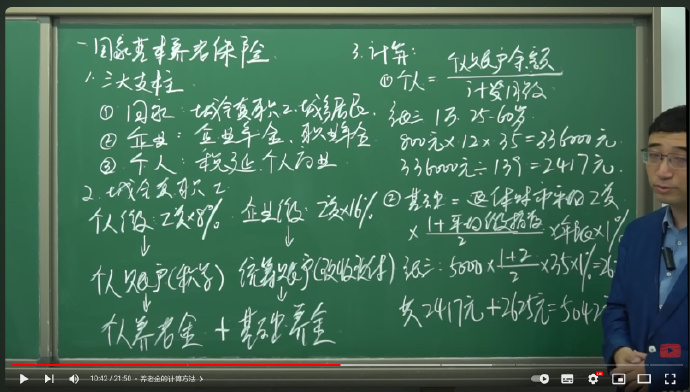 一 国家基本养老保险
1. 三大支柱
① 国家: 城镇职工、城乡居民
② 企业: 企业年金、职业年金
③ 个人: 税延、个人商业
2. 城镇职工
个人缴: 工资×8% 企业缴: 工资×16%
↓ ↓
个人账户(积累) 统筹账户(现收现付)
↓ ↓
个人养老金 + 基础养老金
3. 计算:
① 个人 = 个人账户余额
计发月数
张三 1万. 25-60岁
800元×12×35=336000元
336000元÷139=2417元
② 基础 = 退休时市平均工资
× 1+平均缴费指数 ×年限×1%
2
张三: 5000× 1+2 ×35×1%=26
2
共2417元+2625元=5042
10:42 / 21:50 • 养老金的计算方法 >